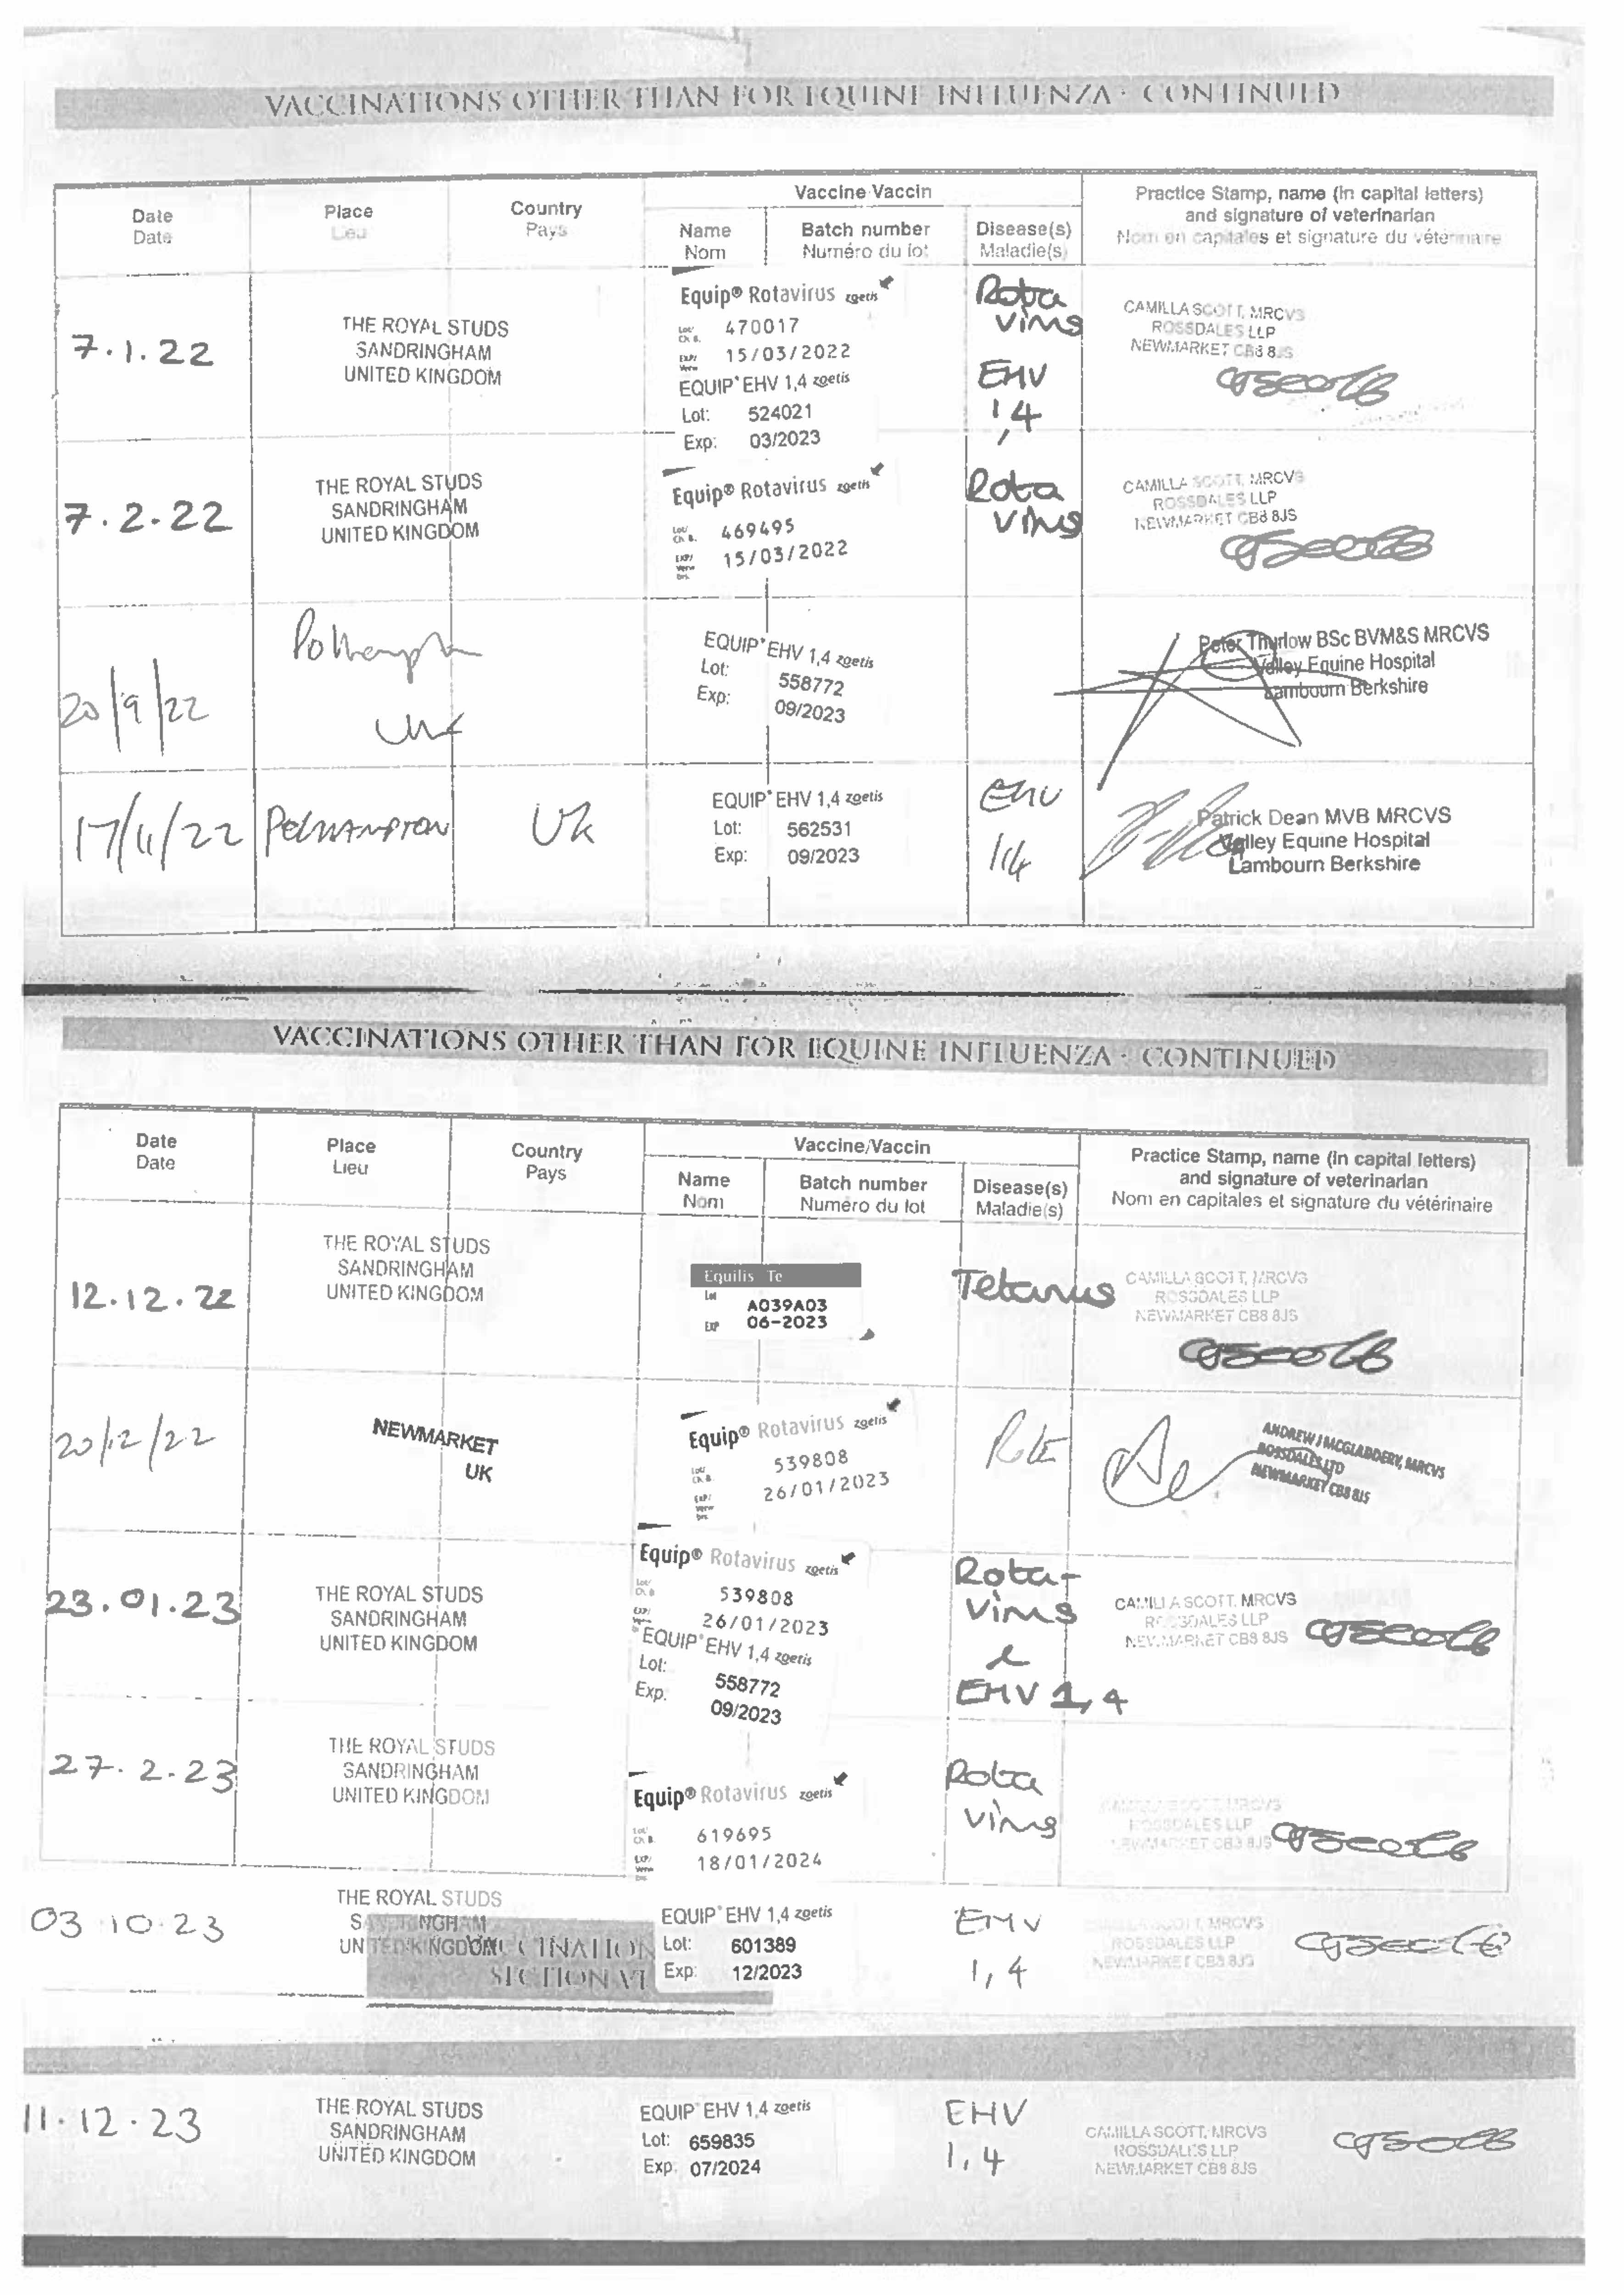 VACCINATIONS OTHER THAN FOR EQUINE INFLUENZA · CONTINUED
Date
Date
Place
Lieu
Country
Pays
Vaccine Vaccin
Name
Nom
Batch number
Numéro du lot
Disease(s)
Maladie(s)
Practice Stamp, name (in capital letters)
and signature of veterinarian
Nom en capitales et signature du vétérinaire
7.1.22
THE ROYAL STUDS
SANDRINGHAM
UNITED KINGDOM
Equip® Rotavirus zoetis
Lot/
Ch.B.
470017
EXP/
Verw
15/03/2022
EQUIP® EHV 1,4 zoetis
Lot: 524021
Exp: 03/2023
Rota
virus
EHV
1,4
CAMILLA SCOTT, MRCVS
ROSSDALES LLP
NEWMARKET CB8 8JS
7.2.22
THE ROYAL STUDS
SANDRINGHAM
UNITED KINGDOM
Equip® Rotavirus zoetis
Lot/
Ch.B.
469495
EXP/
Verw
15/03/2022
Rota
virus
CAMILLA SCOTT, MRCVS
ROSSDALES LLP
NEWMARKET CB8 8JS
20/9/22
Polhampton
UK
EQUIP® EHV 1,4 zoetis
Lot: 558772
Exp: 09/2023
Peter Thurlow BSc BVM&S MRCVS
Valley Equine Hospital
Lambourn Berkshire
17/11/22
POLHAMPTON
UK
EQUIP® EHV 1,4 zoetis
Lot: 562531
Exp: 09/2023
EHV
1/4
Patrick Dean MVB MRCVS
Valley Equine Hospital
Lambourn Berkshire
VACCINATIONS OTHER THAN FOR EQUINE INFLUENZA · CONTINUED
Date
Date
Place
Lieu
Country
Pays
Vaccine/Vaccin
Name
Nom
Batch number
Numéro du lot
Disease(s)
Maladie(s)
Practice Stamp, name (in capital letters)
and signature of veterinarian
Nom en capitales et signature du vétérinaire
12.12.22
THE ROYAL STUDS
SANDRINGHAM
UNITED KINGDOM
Equilis Te
Lot A039A03
EXP 06-2023
Tetanus
CAMILLA SCOTT, MRCVS
ROSSDALES LLP
NEWMARKET CB8 8JS
20/12/22
NEWMARKET
UK
Equip® Rotavirus zoetis
Lot/
Ch.B.
539808
EXP/
Verw
26/01/2023
Rota
ANDREW J MCGLADDERY, MRCVS
ROSSDALES LTD
NEWMARKET CB8 8JS
23.01.23
THE ROYAL STUDS
SANDRINGHAM
UNITED KINGDOM
Equip® Rotavirus zoetis
Lot/
Ch.B.
539808
EXP/
26/01/2023
EQUIP® EHV 1,4 zoetis
Lot: 558772
Exp. 09/2023
Rota-
virus
&
EHV 1,4
CAMILLA SCOTT, MRCVS
ROSSDALES LLP
NEWMARKET CB8 8JS
27.2.23
THE ROYAL STUDS
SANDRINGHAM
UNITED KINGDOM
Equip® Rotavirus zoetis
Lot/
Ch.B.
619695
EXP/
Verw
18/01/2024
Rota
virus
CAMILLA SCOTT, MRCVS
ROSSDALES LLP
NEWMARKET CB8 8JS
03.10.23
THE ROYAL STUDS
SANDRINGHAM
UNITED KINGDOM
SECTION VI
EQUIP® EHV 1,4 zoetis
Lot: 601389
Exp: 12/2023
EHV
1,4
CAMILLA SCOTT, MRCVS
ROSSDALES LLP
NEWMARKET CB8 8JS
11.12.23
THE ROYAL STUDS
SANDRINGHAM
UNITED KINGDOM
EQUIP® EHV 1,4 zoetis
Lot: 659835
Exp. 07/2024
EHV
1,4
CAMILLA SCOTT, MRCVS
ROSSDALES LLP
NEWMARKET CB8 8JS